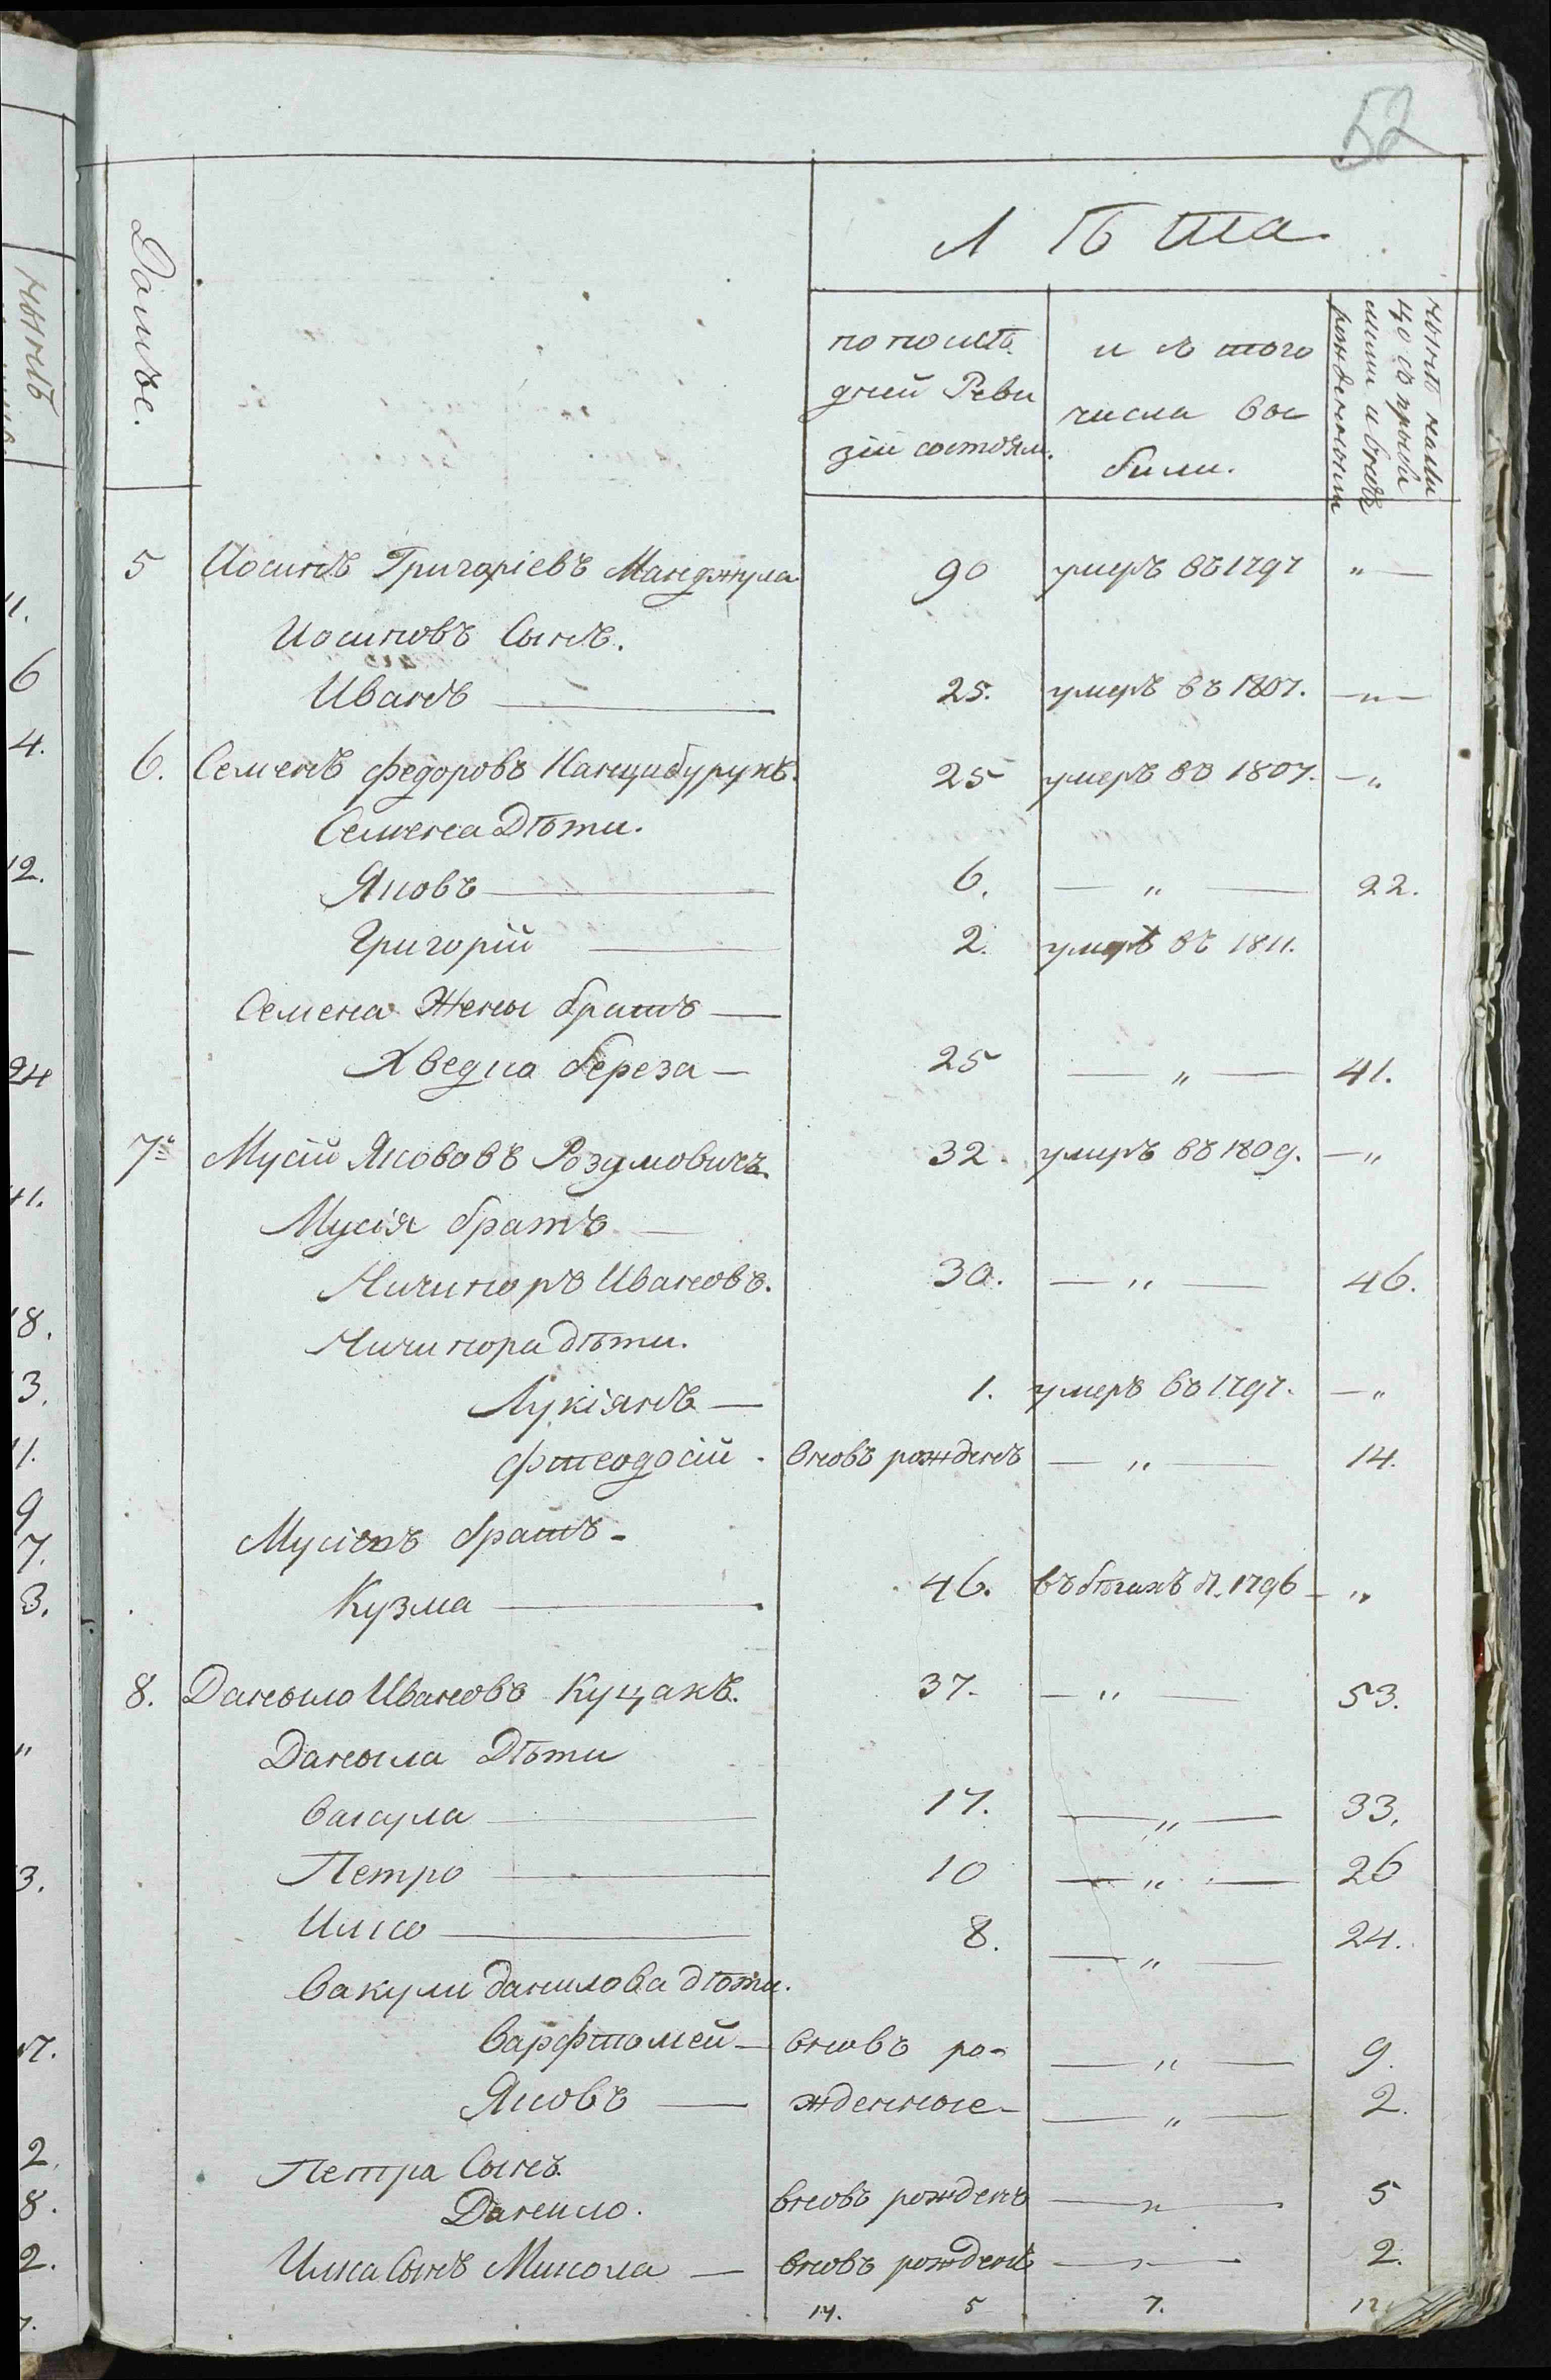 52
Домъ.
Лѣта.
по послѣ-
дней Реви
зіи состоял.
и съ того
числа вы
были.
нынѣ нали
цо съ прибы
лими и вновь
рожденными
5 Иосипъ Григоріевъ Манджула 90 умеръ въ 1797 "—
Иосиповъ Сынъ.
Иванъ — 25. умеръ въ 1807. —"—
6. Семенъ Федоровъ Канцибурукъ. 25 умеръ въ 1807. —"
Семена Дѣти.
Яковъ — 6. — " — 22.
Григорій — 2. умеръ въ 1811.
Семена Жены братъ —
Хведко береза — 25 — " — 41.
7. Мусій Якововъ Розумовичъ. 32. умеръ въ 1809. —"
Мусія братъ —
Ничипоръ Ивановъ. 30. — " — 46.
Ничипора дѣти.
Лукіянъ — 1. умеръ въ 1797. —"
Фтеодосій. вновь рожденъ — " — 14.
Мусіевъ братъ -
Кузма — 46. въ бѣгахъ 1796 — "
8. Даныло Ивановъ Куцакъ. 37. — " — 53.
Даныла Дѣти
Вакула — 17. — " — 33.
Петро — 10 — " — 26
Илко — 8. — " — 24.
Вакули данилова дѣти.
Варфтомей — вновь ро- — " — 9.
Яковъ — жденные — — " — 2.
Петра Сынъ.
Данило. вновь рожденъ — " — 5
Илка Сынъ Микола — вновь рожденъ — " — 2.
14. 5 7. 12